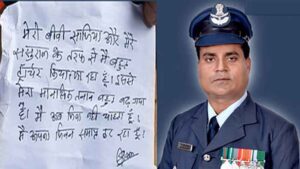 मेरी बीवी साफिया और मेरे
ससुराल के तरफ से मैं बहुत
टॉर्चर किया जा रहा हूं। इससे
मेरा मानसिक तनाव बहुत बढ़ गया
है। मैं अब जीना नहीं चाहता हूं।
मैं अपना जीवन समाप्त कर रहा हूं।